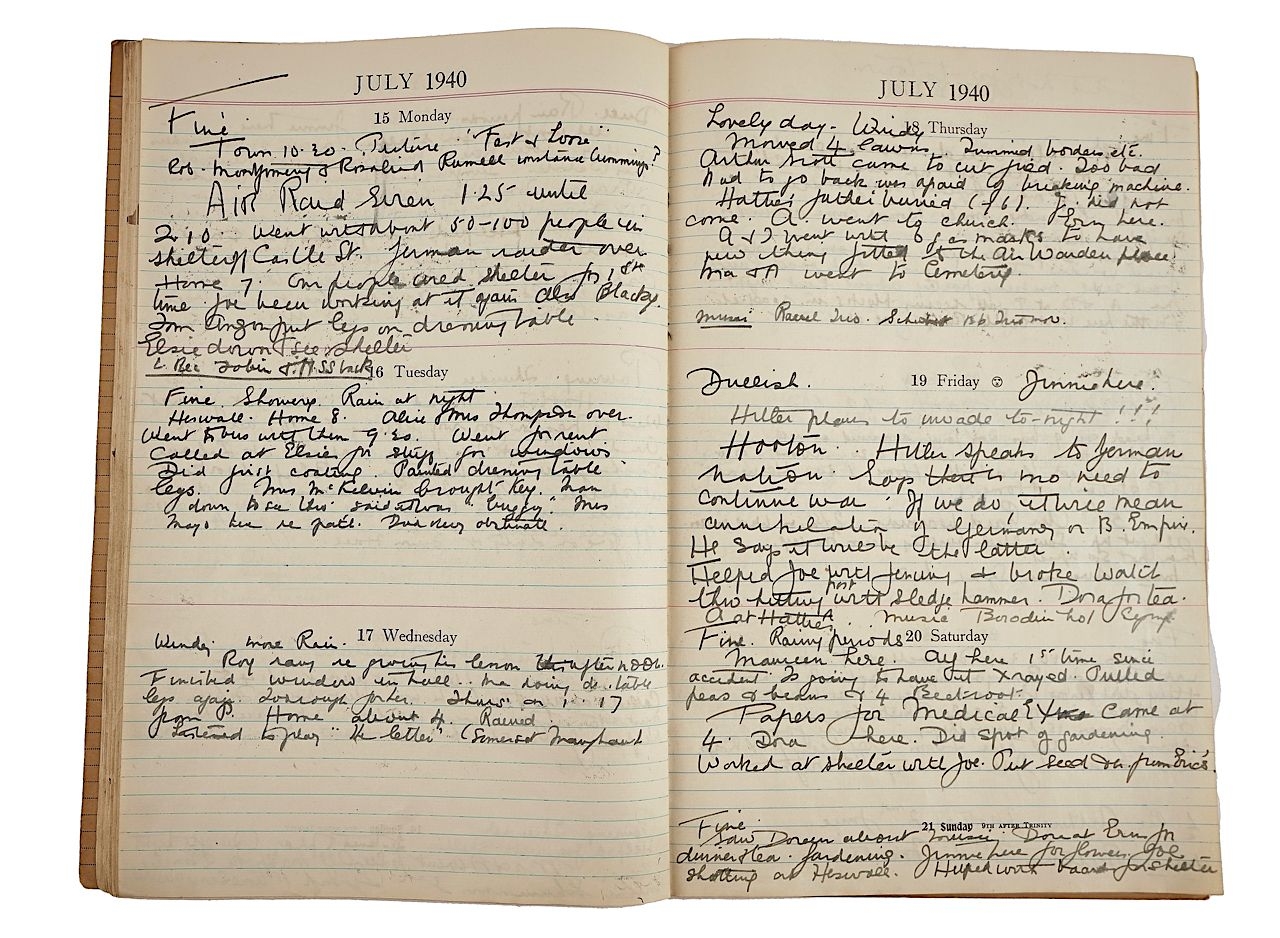 JULY 1940
15 Monday
Fine
Town 10.30. Picture "Fast & Loose"
Rob. Montgomery & Rosalind Russell Constance Cummings?
Air Raid Siren 1.25 until
2.10. Went with about 50-100 people in
shelter of Castle St. German raider over
Home 7. Our people used shelter for 1st
time Joe been working at it again also Blacky.
Tom put legs on dressing table.
Elsie down to see shelter
16 Tuesday
Fine Showery. Rain at night.
Heswall. Home 8. Alice & Mrs Thompson over.
Went to bus with them 9.30. Went for rent
Called at Elsie for stuff for windows.
Did first coating. Painted dressing table
legs. Mrs McKelvin brought key. Man
down to see this said it was "buggy". Mrs
Mayo here re path. Dad very obstinate.
17 Wednesday
Windy more Rain.
Roy rang re giving his lesson this afternoon.
Finished window in hall. Ma doing d. table
legs again. Thurs on 1. 17
from. Home about 4. Rained.
Listened to play "The letter" (Somerset Maugham)
JULY 1940
18 Thursday
Lovely day - Windy
Mowed 4 lawns. Trimmed borders etc.
Arthur Scott came to cut field. Too bad
had to go back was afraid of breaking machine.
Hattie's father buried (76). J. did not
come. A. went to church. Ern here.
A & I went with 8 gas masks to have
new thing fitted to the Air Warden place.
Ma & A went to Cemetery
Music Ravel Trio. Schubert
19 Friday
Dullish. Jinnie here.
Hitler plans to invade to-night!!!
Hooton. Hitler speaks to German
nation. Says there is no need to
continue war. If we do, it will mean
annihilation of Germany or B. Empire.
He says it will be the latter.
Helped Joe with fencing & broke watch
thro hitting post with sledge hammer. Dora for tea.
A at Hattie's. Music Borodin No 1 Symp.
20 Saturday
Fine. Rainy periods
Maureen here. Alf here 1st time since
accident. Is going to have it Xrayed. Pulled
peas & beans & 4 Beetroot.
Papers for Medical Exam came at
4. Dora here. Did spot of gardening.
Worked at shelter with Joe. Put seed in from Eric's.
21 Sunday 9TH AFTER TRINITY
Fine.
Saw Doreen about music. Dora at Erns for
dinner & tea. Gardening. Jinnie here for flowers. Joe
shotting at Heswall. Helped with boards for shelter